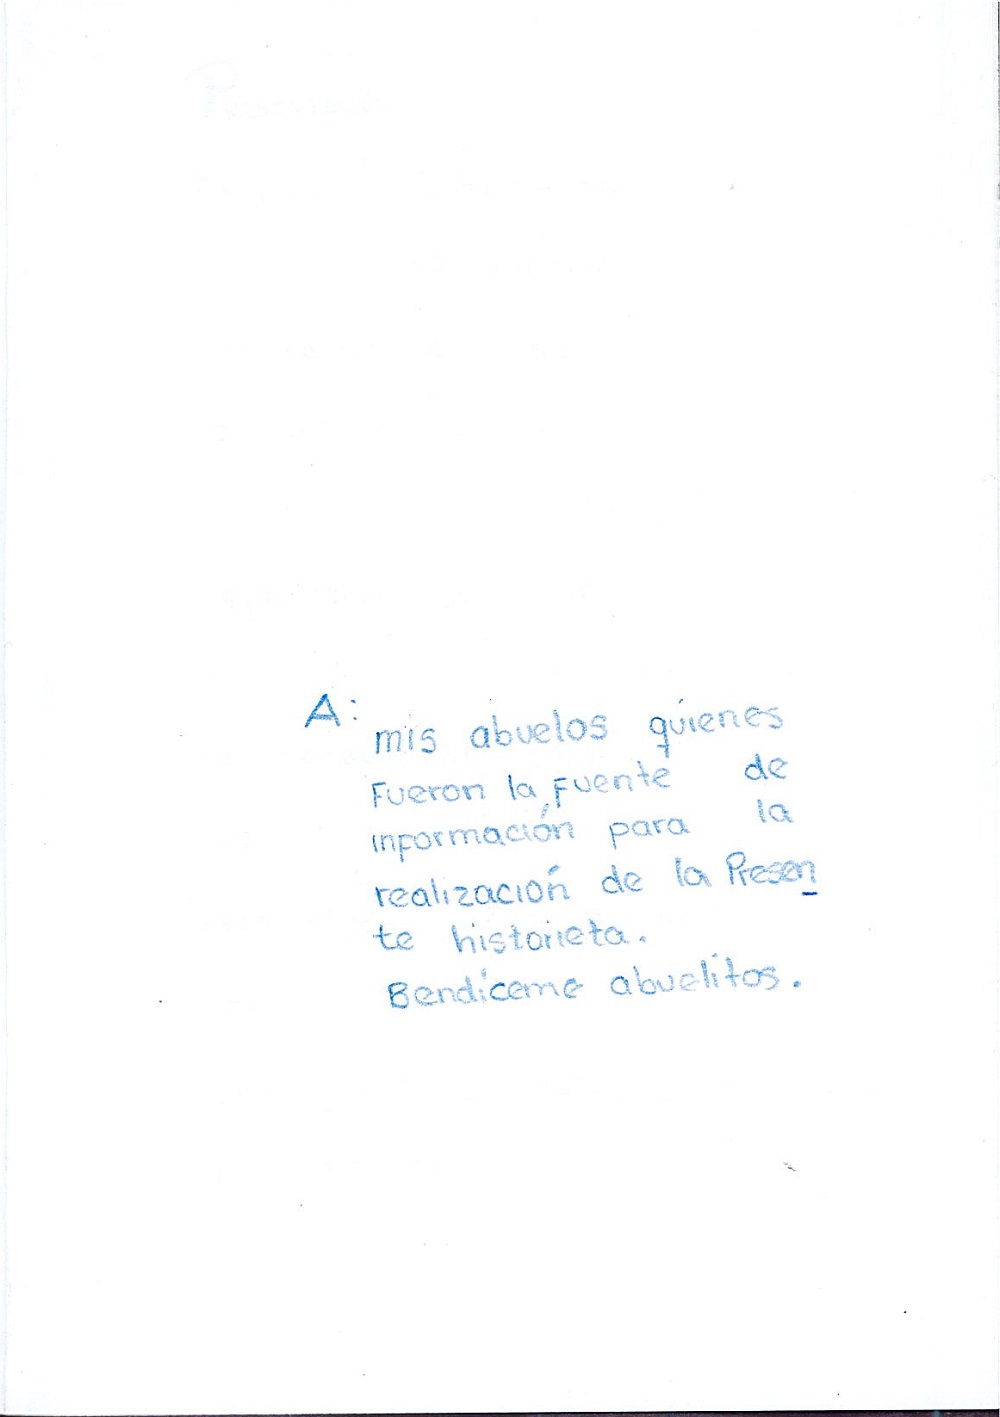 A:
mis abuelos quienes
Fueron la fuente de
información para la
realización de la Presen
te historieta.
Bendíceme abuelitos.